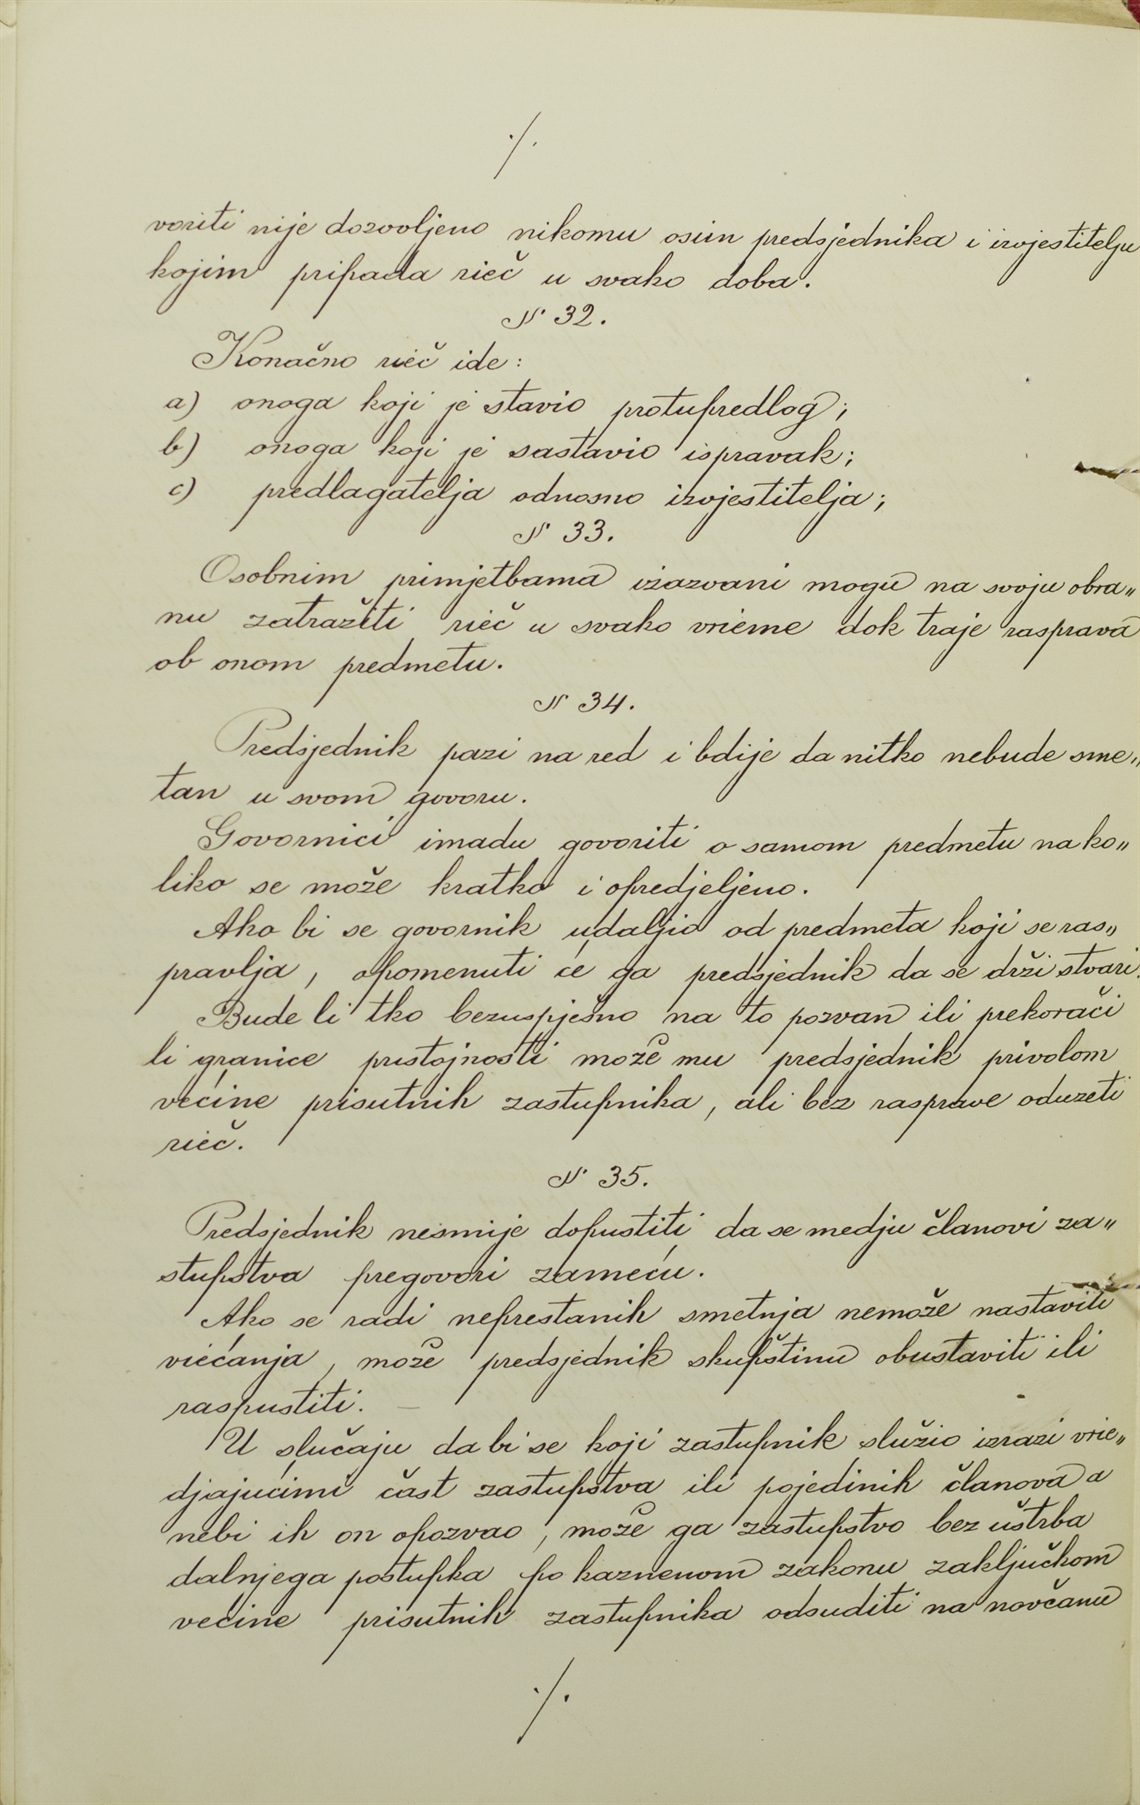 ./.
voriti nije dozvoljeno nikomu osim predsjednika i izvjestitelju
kojim pripada rieč u svako doba.
§ 32.
Konačno rieč ide:
a) onoga koji je stavio protupredlog;
b) onoga koji je sastavio ispravak;
c) predlagatelja odnosno izvjestitelja;
§ 33.
Osobnim primjetbama izazvani mogu na svoju obra„
nu zatražiti rieč u svako vrieme dok traje rasprava
ob onom predmetu.
§ 34.
Predsjednik pazi na red i bdije da nitko nebude sme„
tan u svom govoru.
Govornici imadu govoriti o samom predmetu na ko„
liko se može kratko i opredjeljeno.
Ako bi se govornik udaljio od predmeta koji se ras„
pravlja, opomenuti će ga predsjednik da se drži stvari.
Bude li tko bezuspješno na to pozvan ili prekorači
li granice pristojnosti može mu predsjednik privolom
većine prisutnih zastupnika, ali bez rasprave oduzeti
rieč.
§ 35.
Predsjednik nesmije dopustiti da se medju članovi za„
stupstva pregovori zameću.
Ako se radi neprestanih smetnja nemože nastaviti
viećanja, može predsjednik skupštinu obustaviti ili
raspustiti.
U slučaju da bi se koji zastupnik služio izrazi vrie„
djajućimi čast zastupstva ili pojedinih članova a
nebi ih on opozvao, može ga zastupstvo bez uštrba
dalnjega postupka po kaznenom zakonu zaključkom
većine prisutnih zastupnika odsuditi na novčanu
./.